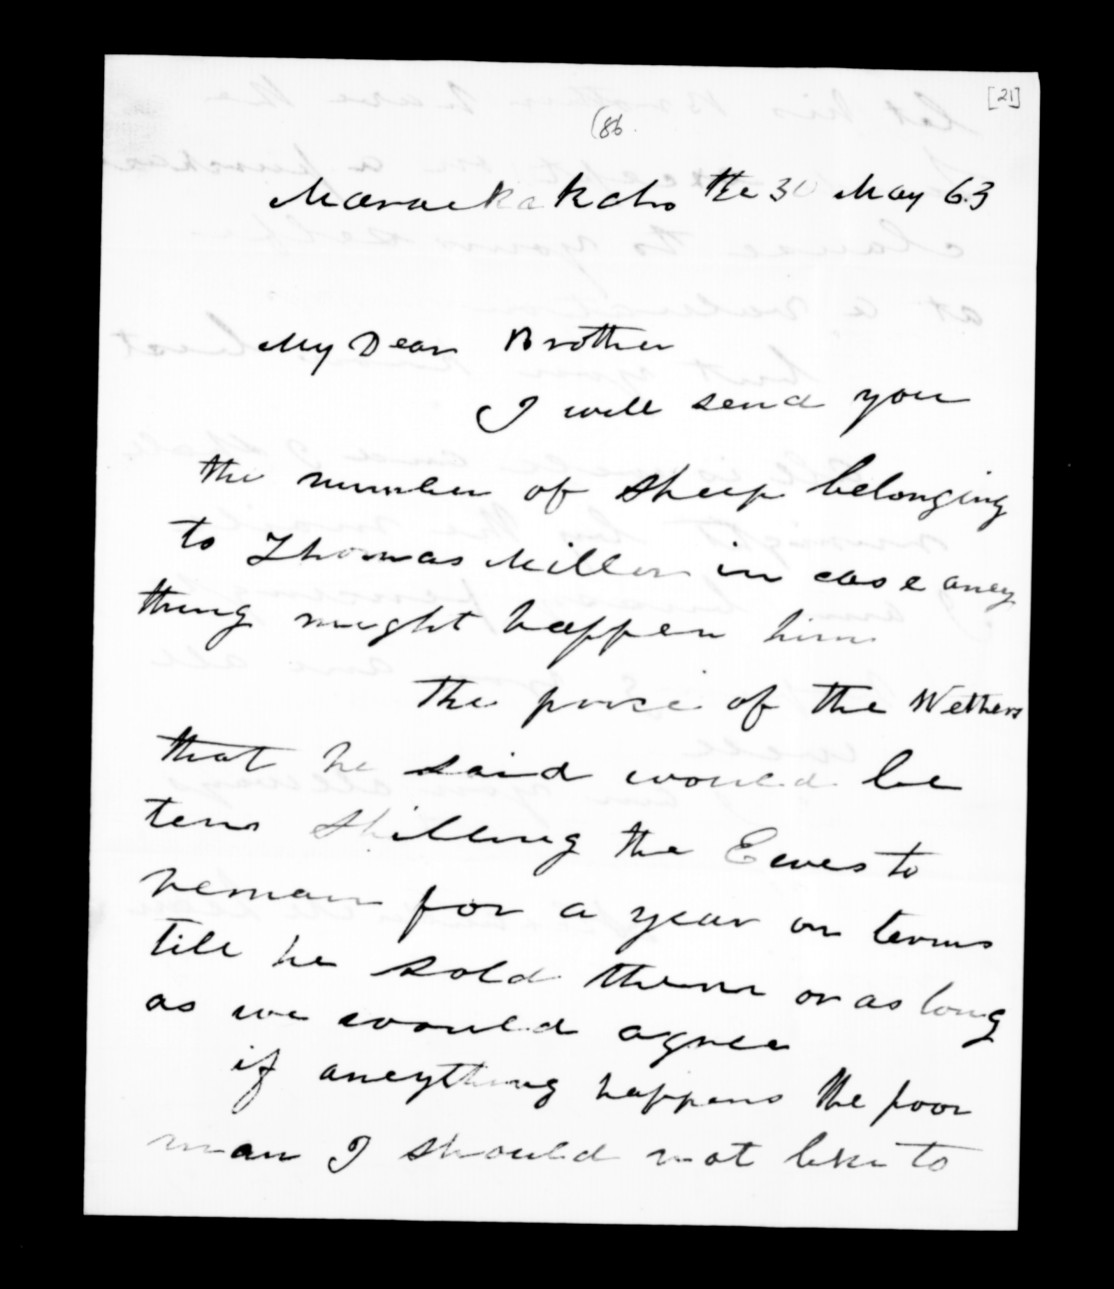 [21]
(86.
Maraekakaho the 30 May 63
My Dear Brother
I will send you
the number of sheep belonging
to Thomas Miller in case aney
thing might happen him
The prise of the Wethers
that he said would be
tenn shilling the Eewes to
reman for a year on terms
till he sold them or as long
as we would agree
if aneything happens the poor
man I should not like to